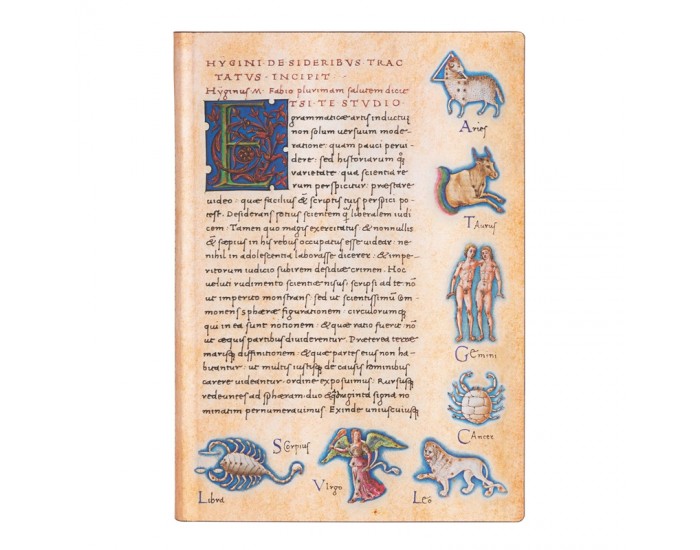 HYGINI · DE SIDERIBVS · TRAC
TATVS · INCIPIT ·
Hyginus M · Fabio plurimam salutem dicit
ETSI · TE STVDIO ·
grammaticæ artis inductũ
non solum versuum mode-
ratione · quam pauci pervi-
dere · sed historiarum q̃
varietate qua scientia re
rum perspicitur · præstare
video · quæ facilius & scriptis tuis perspici po-
test · Desiderans potius scientem q̃ liberalem iudi
cem · Tamen quo magis exercitatus · & nonnullis
& sæpius in his rebus occupatus esse videar · ne-
nihil in adolescentia laborasse dicerer · & impe-
ritorum iudicio subirem desidiæ crimen · Hoc
veluti rudimento scientiæ nisus, scripsi ad te · nõ
ut imperito monstrans, sed ut scientissimũ com-
monens sphæræ figurationem · circulorumq
qui in ea sunt notionem · & quæ ratio fuerit · nõ
ut æquis partibus dividerentur · Præterea terræ
marisq diffinitionem · & quæ partes eius non ha-
bitantur · ut multis iustisq de causis hominibus
carere videantur · ordine exposuimus · Rursusq
redeuntes ad sphæram · duo & quadraginta signa no
minatim pernumeravimus · Exinde uniuscuiusq
Aries
Taurus
Gemini
Cancer
Leo
Virgo
Scorpius
Libra